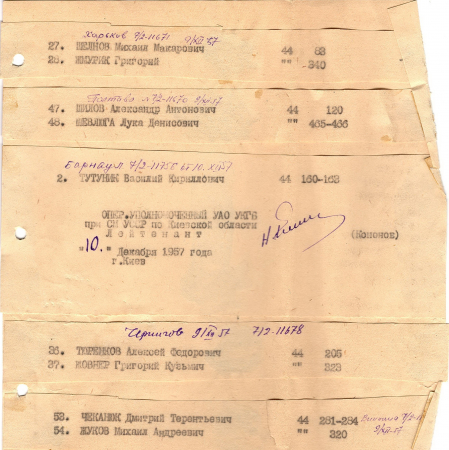 Харьков 7/2-11671 9/XII 57
27. ШЕЛНОВ Михаил Макарович 44 83
28. ЖМУРИК Григорий "" 340
Полтава 9/XII 57
47. ШИЛОВ Александр Антонович 44 120
48. ШЕВЛЮГА Лука Денисович "" 465-466
Барнаул 7/2-11756 от 10.XII57
2. ТУТУНИК Василий Кириллович 44 160-163
ОПЕР.УПОЛНОМОЧЕННЫЙ УАО УКГБ
при СМ УССР по Киевской области
Лейтенант (Кононов)
"10." Декабря 1957 года
г.Киев
Чернигов 9/XII 57 7/2-11678
36. ТЮРЕНКОВ Алексей Федорович 44 205
37. КОВНЕР Григорий Кузьмич "" 323
53. ЧЕКАНЮК Дмитрий Терентьевич 44 281-284
54. ЖУКОВ Михаил Андреевич "" 320 9/XII-57